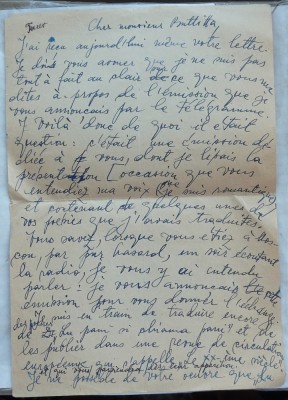 Cher monsieur
J'ai reçu aujourd'hui même votre lettre.
Je dois vous avouer que je ne suis pas
tout à fait au clair de ce que vous me
dites à propos de l'émission que je
vous annonçais par le télégramme.
Voilà donc de quoi il était
question: c'était une émission dé
diée à vous, dont je faisais la
présentation [occasion que vous
entendiez ma voix
et contenant quelques unes
vos poésies que j'avais traduites.
vous savez, lorsque vous étiez à
cou, par hasard, en
la radio, je vous y ai entendu
parler: je vous annonçais
émission pour vous donner
Je suis en train de traduire encore
de et de
les publier dans une revue de circulation
européenne qui s'appelle "Le XX-ème siècle"
je ne possède de votre oeuvre que